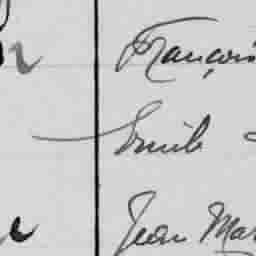 François
Emile
Jean Mar